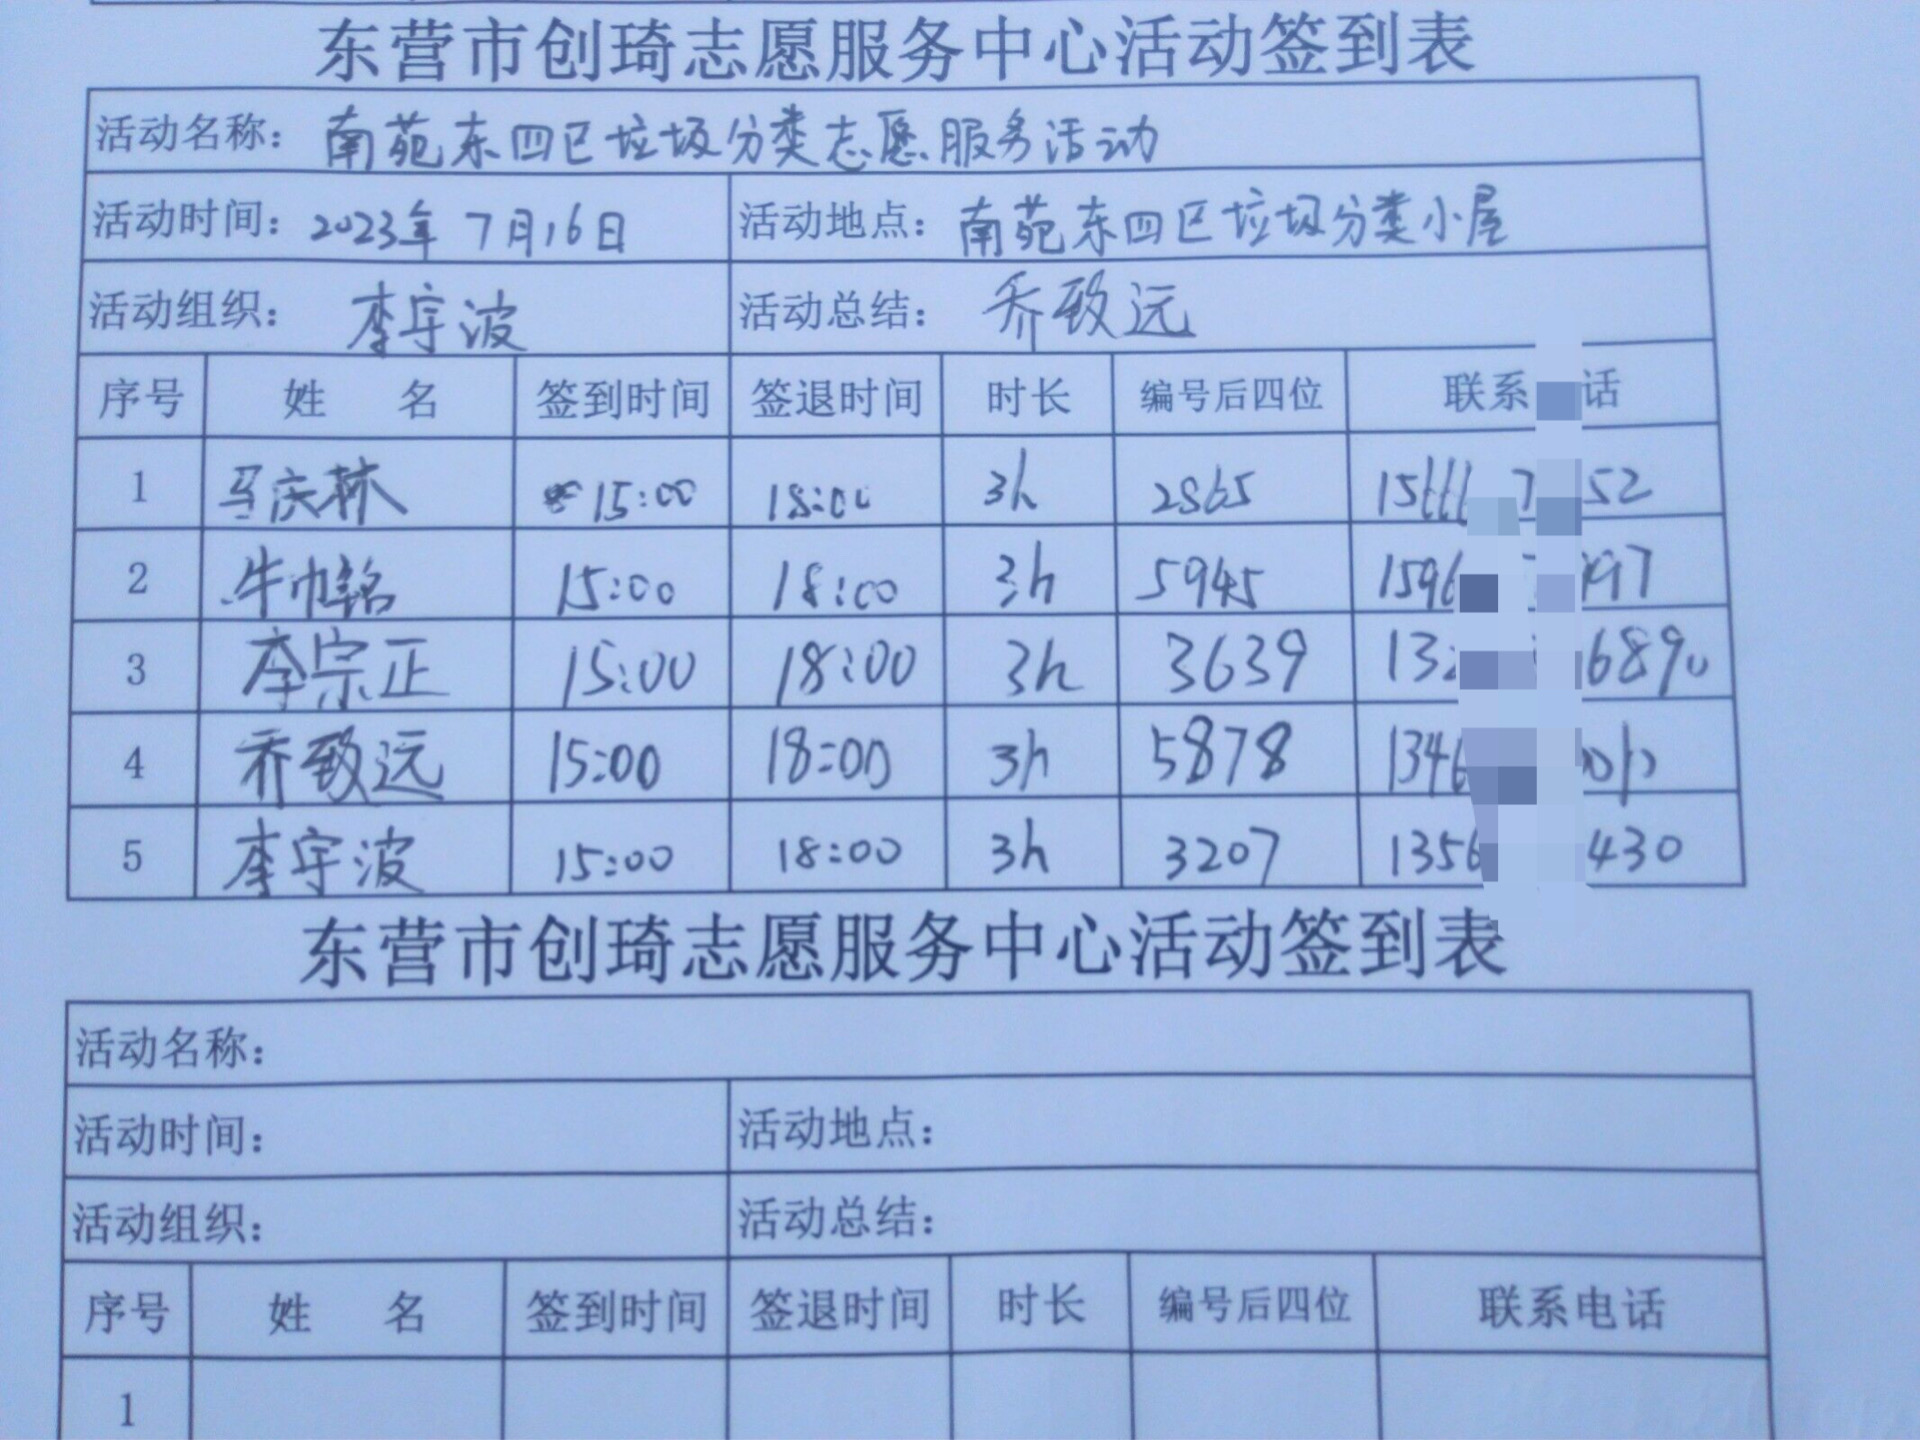 东营市创琦志愿服务中心活动签到表
活动名称：南苑东四区垃圾分类志愿服务活动
活动时间：2023年7月16日 活动地点：南苑东四区垃圾分类小屋
活动组织：李宇波 活动总结：乔致远
序号 姓名 签到时间 签退时间 时长 编号后四位 联系 话
1 马庆林 15:00 18:00 3h 2865 52
2 15:00 18:00 3h 5945 97
3 李宗正 15:00 18:00 3h 3639 6890
4 乔致远 15:00 18:00 3h 5878
5 李宇波 15:00 18:00 3h 3207 430
东营市创琦志愿服务中心活动签到表
活动名称：
活动时间： 活动地点：
活动组织： 活动总结：
序号 姓名 签到时间 签退时间 时长 编号后四位 联系电话
1